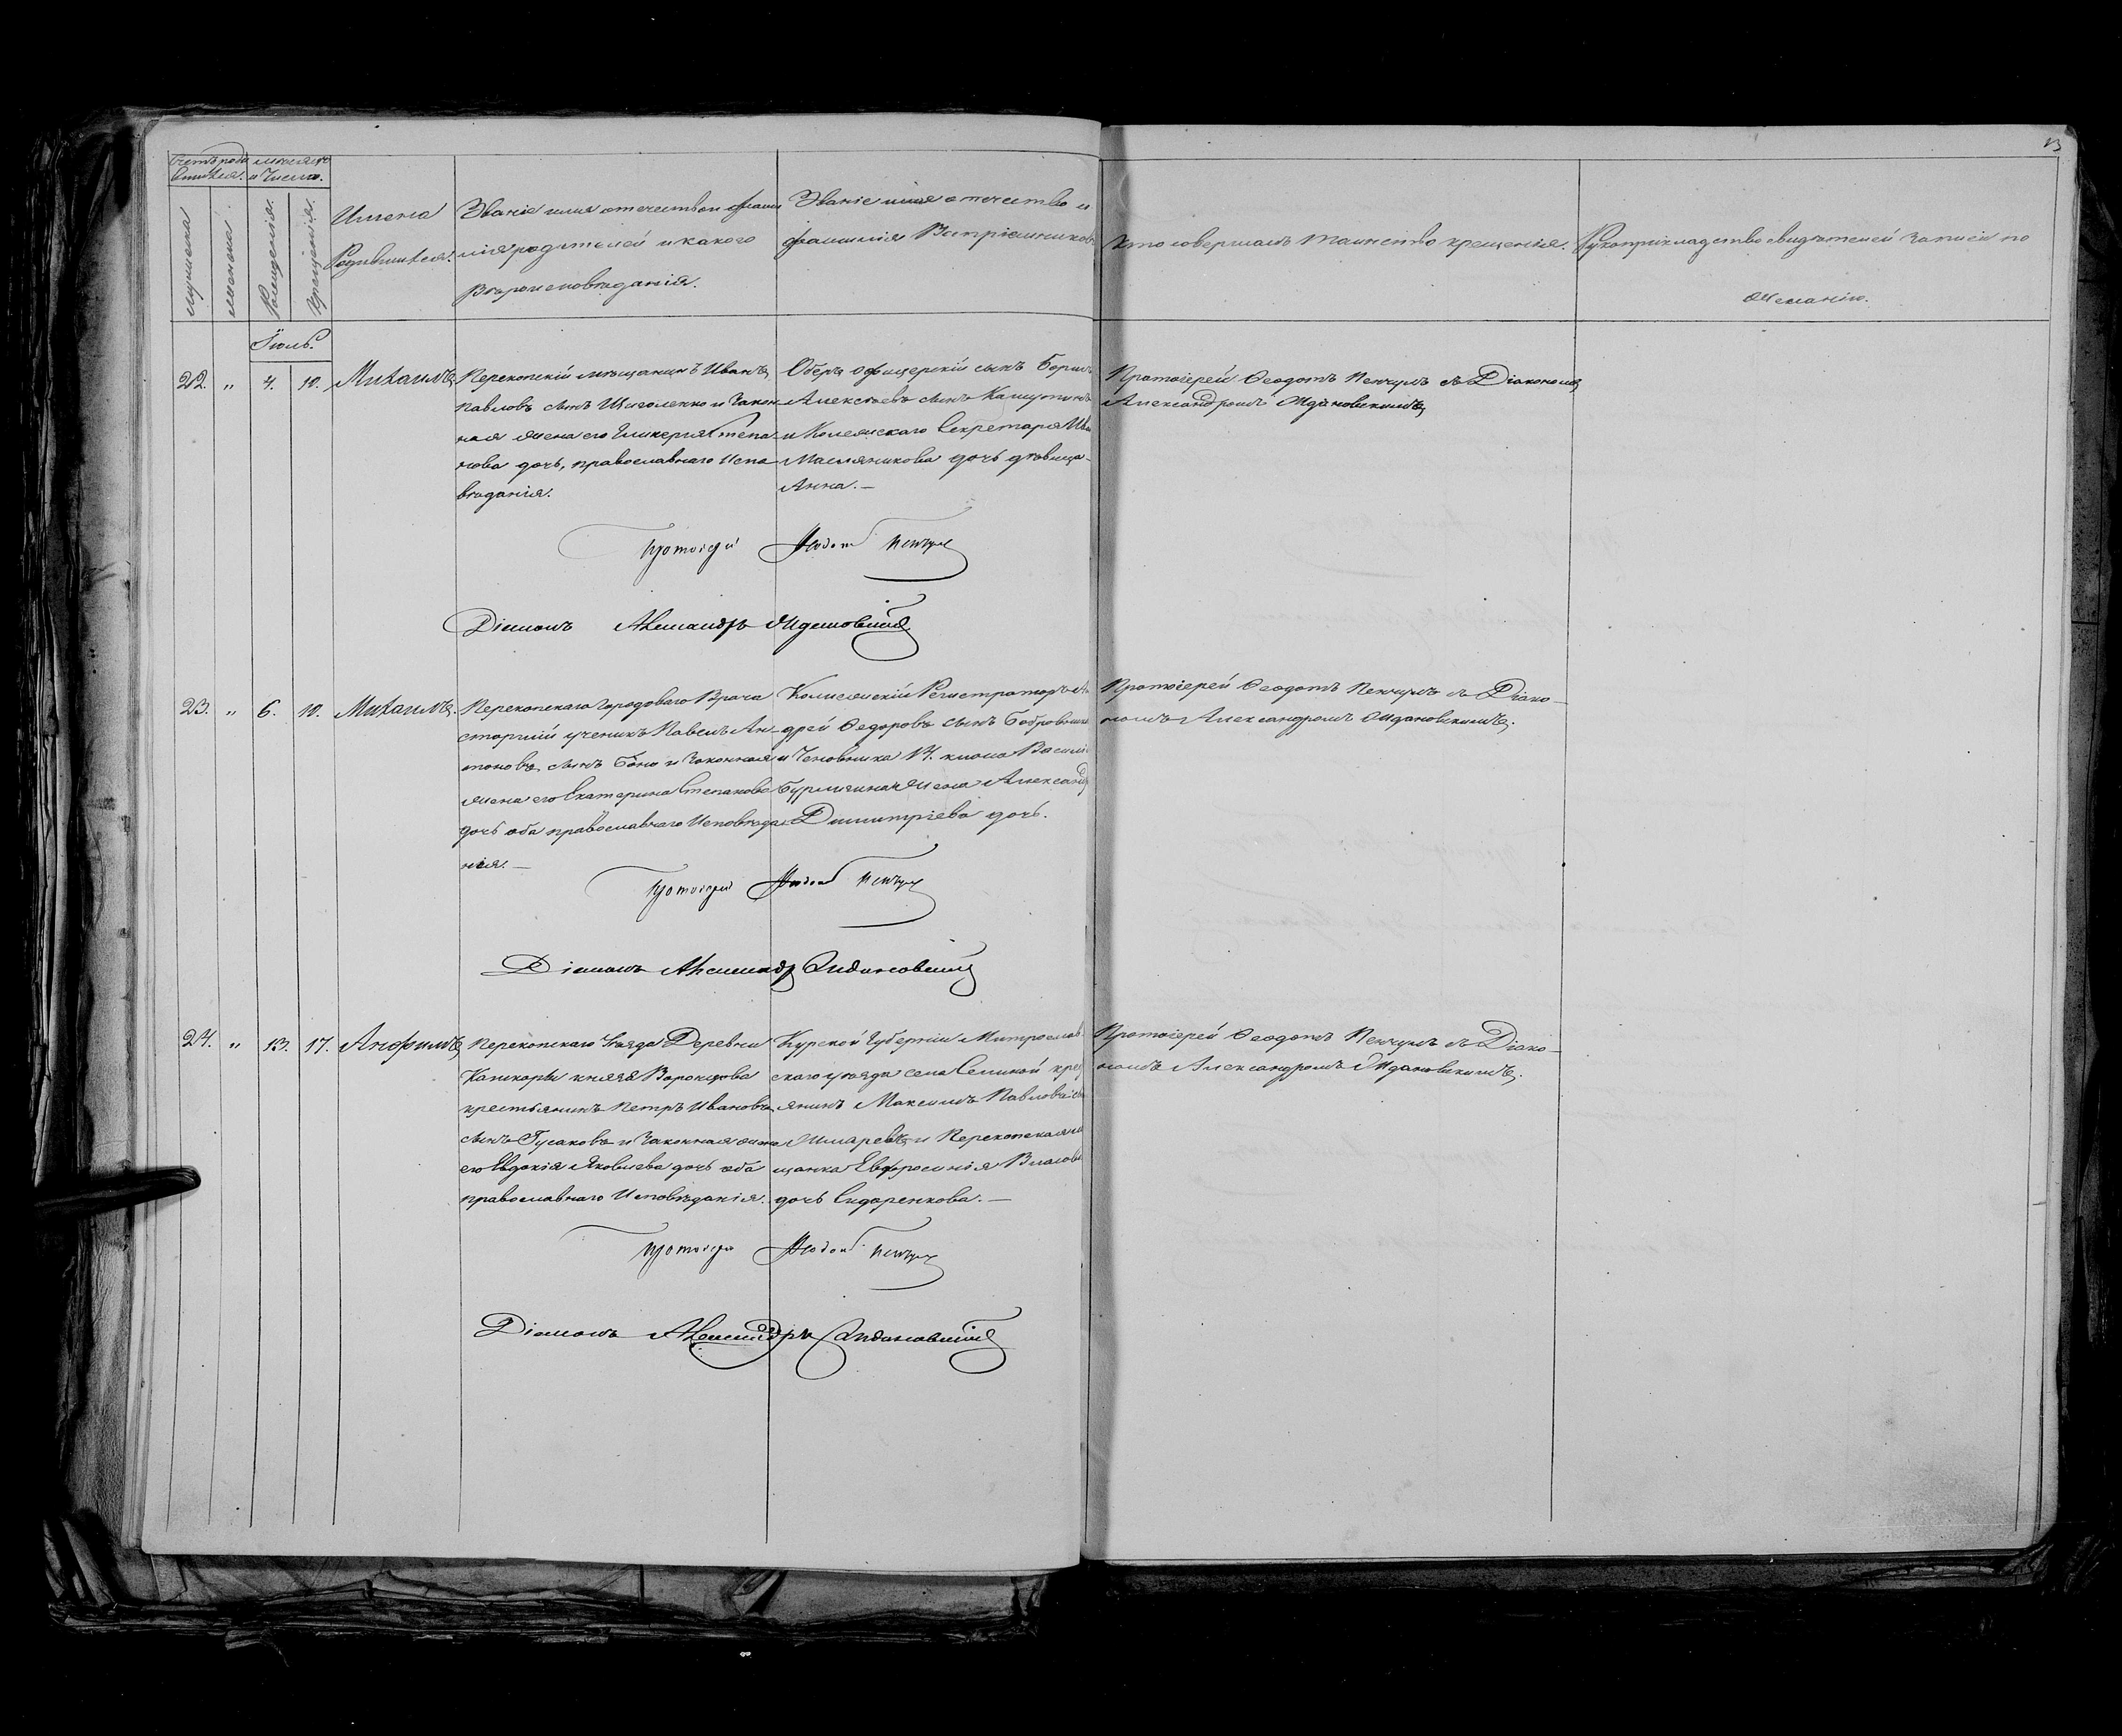 13
Счетъ роди
вшихся.
мѣсяцъ
и Число.
мужеска
женска
Рожденія.
Крещенія.
Имена
Родившихся.
Званіе имя отечество и фами
лія родителей и какого
Вѣроисповѣданія.
Званіе имя отечество и
фамилія Воспріемниковъ
Кто совершалъ таинство крещенія.
Рукоприкладство свидѣтелей записи по
желанію.
Іюль.
22. " 4. 10. Михаилъ
Перекопскій мѣщанинъ Иванъ
Павловъ сынъ Щиголенко и Закон
ная жена его Гликерія Степа
нова дочь, православнаго Испо
вѣданія.
Оберъ офицерскій сынъ Борисъ
Алексѣевъ сынъ
и Колежскаго Секретаря
Масляникова дочь дѣвица
Анна.—
Протоіерей Ѳеодотъ съ Діакономъ
Александромъ Ждановскимъ
Протоіерей Ѳеодотъ
Діаконъ Александръ Ждановскій
23. " 6. 10. Михаилъ.
Перекопскаго Городоваго Врача
старшій ученикъ Павелъ Ан
тоновъ сынъ и Законная
жена его Екатерина Степанова
дочь оба православнаго Исповѣда
нія.—
Колежскій Регистраторъ Ан
дрей Ѳедоровъ сынъ
и Чиновника 14. класа
жена Александра
Димитріева дочь.
Протоіерей Ѳеодотъ съ Діако-
номъ Александромъ Ждановскимъ.
Протоіерей Ѳеодотъ
Діаконъ Александръ Ждановскій
24. " 13. 17. Анѳимъ
Перекопскаго Уѣзда Деревни
князя Воронцова
крестьянинъ Петръ Ивановъ
сынъ Гусаковъ и Законная жена
его Евдокія Яковлева дочь оба
православнаго Исповѣданія.
Курской Губерніи
скаго уѣзда села крес
янинъ Максимъ Павловъ
и Перекопская мѣ
щанка Евфросинія Власова
дочь Сидоренкова.—
Протоіерей Ѳеодотъ съ Діако-
номъ Александромъ Ждановскимъ.
Протоіерей Ѳеодотъ
Діаконъ Александръ Ждановскій